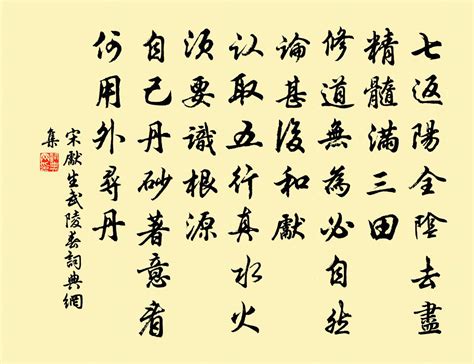 七返陽全陰去盡
精髓滿三田
修道無為必自然
論甚後和獻
认取五行真水火
須要識根源
自己丹砂著意看
何用外尋丹
宋獻生武陵春詞典網
集